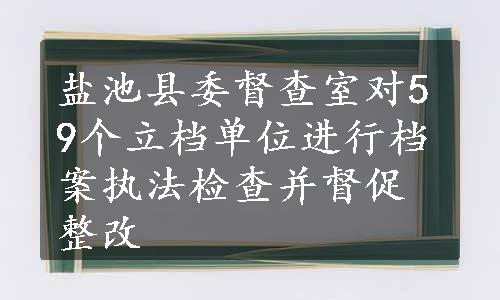 盐池县委督查室对5
9个立档单位进行档
案执法检查并督促
整改